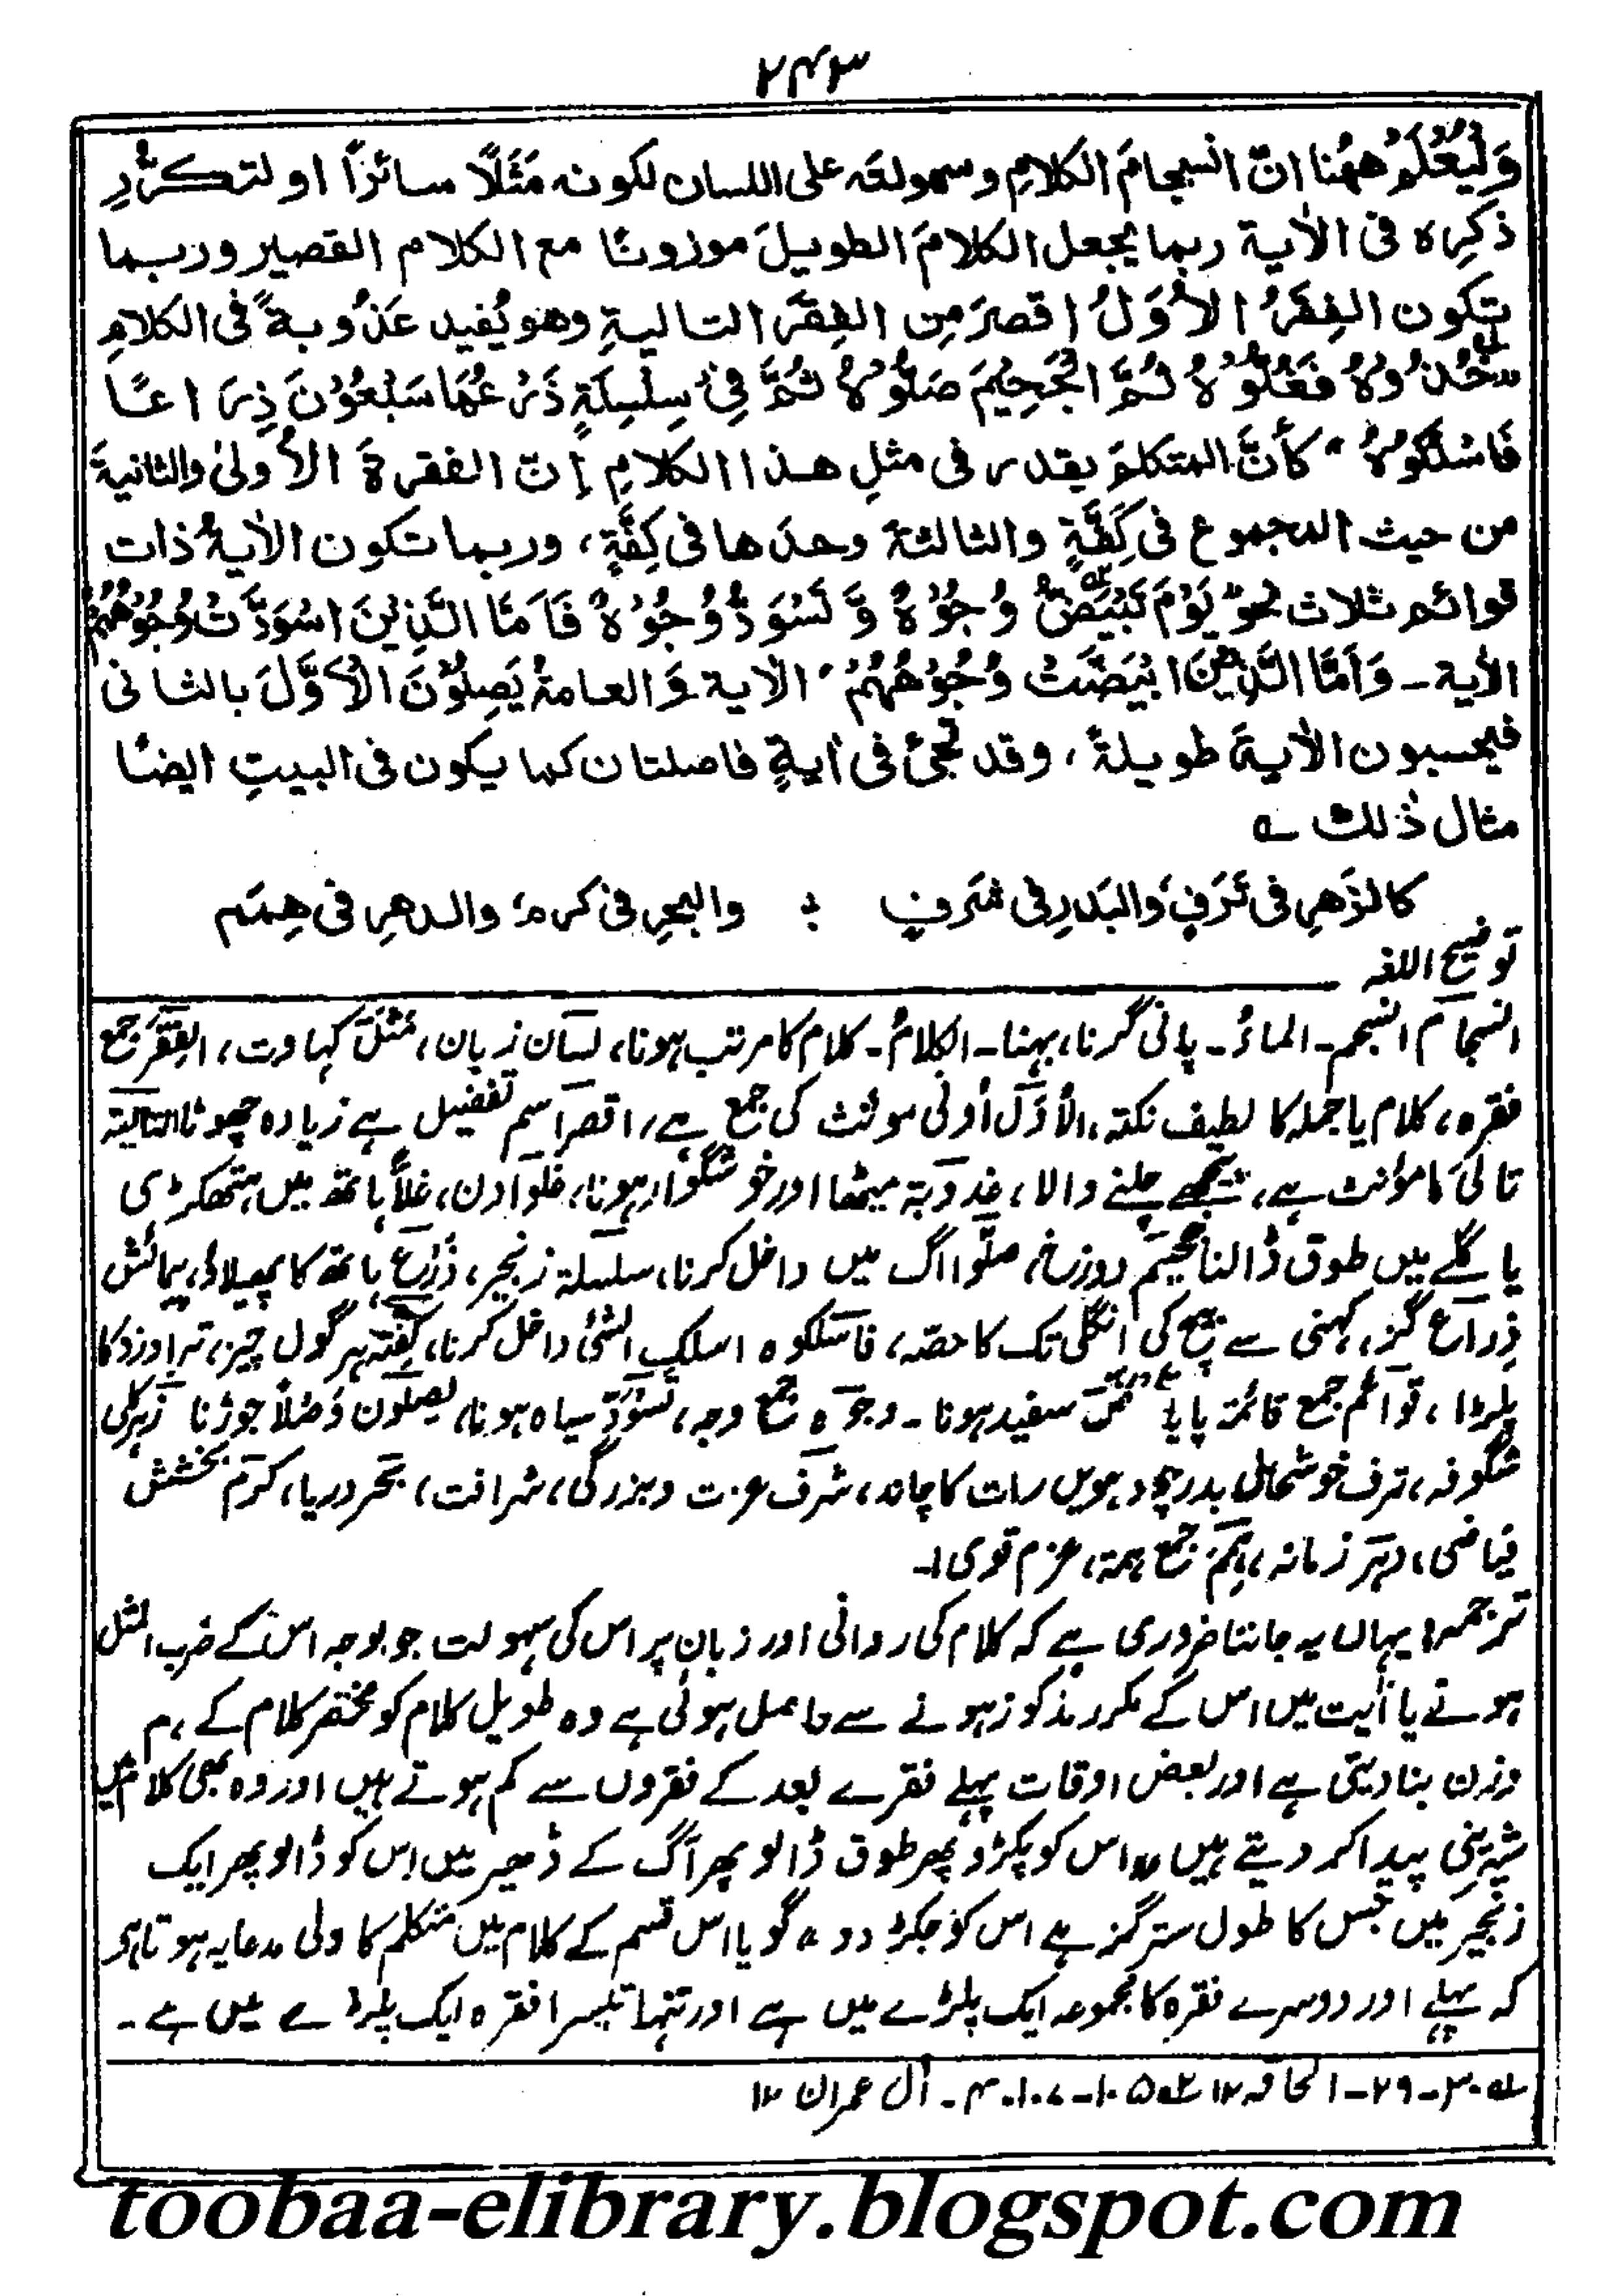 ۲۴۳
وَلْيُعْلَمْ هٰهُنا انّ انسجامَ الكلامِ وسهولتَه على اللسان لكونه مَثَلًا سائرًا او لتكرّرِ
ذكرِہ فى الاٰية ربما يجعل الكلامَ الطويلَ موزونًا مع الكلام القصير وربما
تكون الفِقَرُ الاُوَلُ اقصرَ مِن الفِقَرِ التاليةِ وهو يُفيد عَذُوبةً فى الكلامِ
"خُذُوْهُ فَغُلُّوْهُ ثُمَّ الْجَحِيْمَ صَلُّوْهُ ثُمَّ فِيْ سِلْسِلَةٍ ذَرْعُهَا سَبْعُوْنَ ذِرَاعًا
فَاسْلُكُوْهُ" كأنَّ المتكلمَ يقدر فى مثلِ هذا الكلامِ إنّ الفقرةَ الأولىٰ والثانيةَ
من حيث المجموع فى كِفَّةٍ والثالثةَ وحدَها فى كِفَّةٍ، وربما تكون الاٰيةُ ذات
قوائم ثلاث نحوُ يَوْمَ تَبْيَضُّ وُجُوْهٌ وَّتَسْوَدُّ وُجُوْهٌ فَاَمَّا الَّذِيْنَ اسْوَدَّتْ وُجُوْهُهُمْ
الاٰية ـ وَاَمَّا الَّذِيْنَ ابْيَضَّتْ وُجُوْهُهُمْ" الاٰية وَالعامةُ يَصِلُوْنَ الْاَوَّلَ بالثانى
فيحسبون الاٰيةَ طويلةً، وقد تجئ فى اٰيةٍ فاصلتان كما يكون فى البيتِ ايضًا
مثال ذٰلك ؎
كالزَهرِ فى تَرَفٍ وَالبَدرِ فى شَرَفٍ ؛ والبحرِ فى كرمٍ، والدهرِ فى هِمَم
توضیح اللغہ
انسجام انسجم۔ الماءُ۔ پانی گرنا، بہنا۔ الکلامُ۔ کلام کا مرتب ہونا، لسان زبان، مثل کہاوت، الفِقَر جمع
فقرہ، کلام یا جملہ کا لطیف نکتہ، الاُوَل اُولیٰ مونث کی جمع ہے، اقصر اسم تفضیل ہے زیادہ چھوٹا التالیۃ
تالی کا مؤنث ہے، پیچھے چلنے والا، عذوبۃ میٹھا اور خوشگوار ہونا، غلوا دن، غلاًّ ہاتھ میں ہتھکڑی
یا گلے میں طوق ڈالنا جحیم دوزخ، صلّوا آگ میں داخل کرنا، سلسلۃ زنجیر، ذَرْع ہاتھ کا پھیلاؤ، پیمائش
ذِراع گز، کہنی سے بیچ کی انگلی تک کا حصّہ، فاسلکوہ اسلک الشئ داخل کرنا، کِفّۃ ہر گول چیز، ترازو کا
پلڑا، قوائم جمع قائمۃ پایا سفید ہونا۔ وجوہ جمع وجہ، تسوَدّ سیاہ ہونا، یصلون وَصْلاً جوڑنا زہر کلی
شگوفہ، ترف خوشحالی بدر چودہویں رات کا چاند، شرف عزت وبزرگی، شرافت، بحر دریا، کرم بخشش
فیاضی، دہر زمانہ، ہِمَم جمع ہمۃ، عزم قوی ا۔
ترجمہ: یہاں یہ جاننا ضروری ہے کہ کلام کی روانی اور زبان پر اس کی سہولت جو بوجہ اس کے ضرب المثل
ہونے یا آیت میں اس کے مکرر مذکور ہونے سے حاصل ہوئی ہے وہ طویل کلام کو مختصر کلام کے ہم
وزن بنا دیتی ہے اور بعض اوقات پہلے فقرے بعد کے فقروں سے کم ہوتے ہیں اور وہ بھی کلام میں
شیرینی پیدا کر دیتے ہیں "اس کو پکڑو پھر طوق ڈالو پھر آگ کے ڈھیر میں اس کو ڈالو پھر ایک
زنجیر میں جس کا طول ستر گز ہے اس کو جکڑ دو" گویا اس قسم کے کلام میں متکلم کا ولی مدعا یہ ہوتا ہے
کہ پہلے اور دوسرے فقرہ کا مجموعہ ایک پلڑے میں ہے اور تنہا تیسرا فقرہ ایک پلڑے میں ہے۔
؎ ۳۰-۲۹-الحاقہ ۱۲ ؎ ۱۰۵-۱۰۷-۴- اٰل عمران ۱۲
toobaa-elibrary.blogspot.com